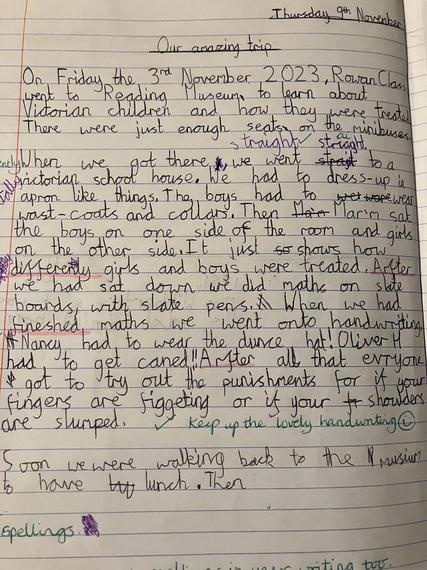 Thursday 9th November
Our amazing trip
On Friday the 3rd November 2023, Rowan Class
went to Reading Museum to learn about
Victorian children and how they were treated
There were just enough seats on the minibuses.
straight straight
When we got there we went strait to a
victorian school house. We had to dress-up in
apron like things. The boys had to wear
wast-coats and collars. Then Mar'm sat
the boys on one side of the room and girls
on the other side. It just so shows how
differently girls and boys were treated. After
we had sat down we did maths on slate
boards, with slate pens. When we had
fineshed maths we went onto handwriting
Nancy had to wear the dunce hat! Oliver H
had to get caned!! After all that evryone
got to try out the punishments for if your
fingers are figgeting or if your shoulders
are slumped. ✓ Keep up the lovely handwriting ☺
Soon we were walking back to the Musium
to have lunch. Then
Spellings
spellings in your writing too.